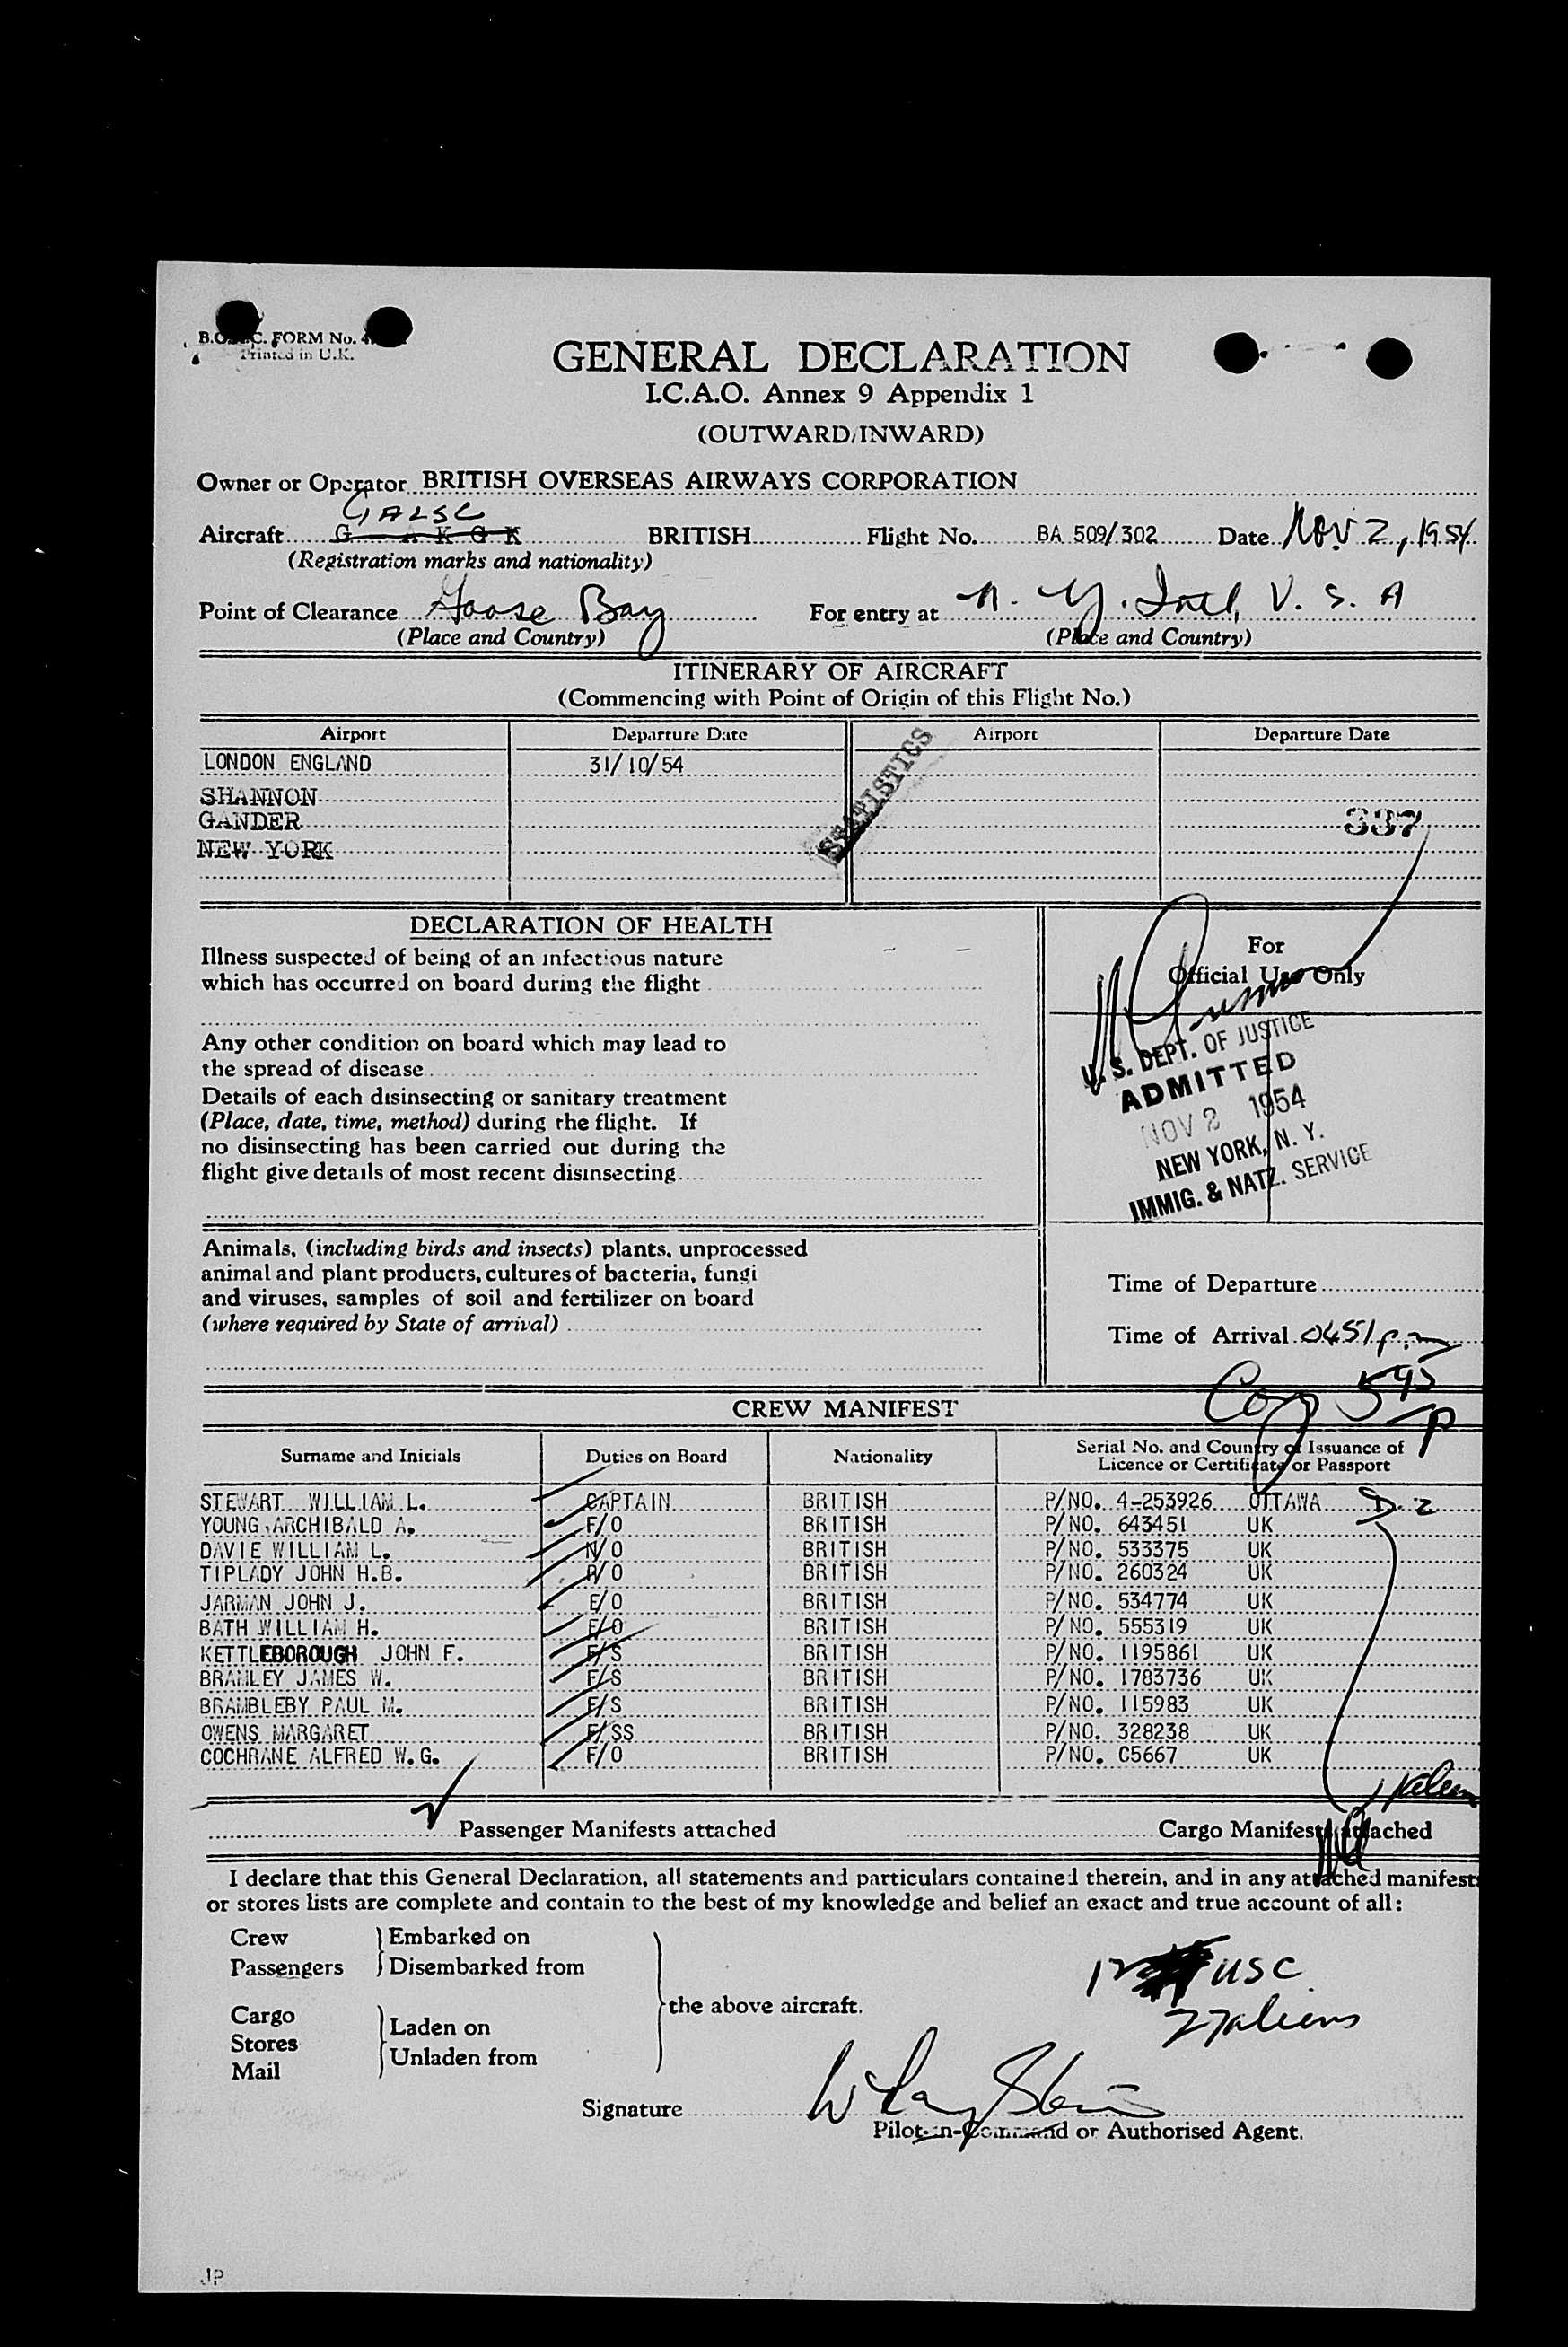 B.O.A.C. FORM No. 4
Printed in U.K.
GENERAL DECLARATION
I.C.A.O. Annex 9 Appendix 1
(OUTWARD/INWARD)
Owner or Operator BRITISH OVERSEAS AIRWAYS CORPORATION
GALSC
Aircraft G - A K G K BRITISH Flight No. BA 509/302 Date Nov 2, 1954
(Registration marks and nationality)
Point of Clearance Goose Bay For entry at N. Y. Intl, U. S. A
(Place and Country) (Place and Country)
ITINERARY OF AIRCRAFT
(Commencing with Point of Origin of this Flight No.)
Airport Departure Date Airport Departure Date
LONDON ENGLAND 31/10/54
STATISTICS
SHANNON
GANDER 337
NEW YORK
DECLARATION OF HEALTH
Illness suspected of being of an infectious nature
which has occurred on board during the flight
Any other condition on board which may lead to
the spread of disease
Details of each disinsecting or sanitary treatment
(Place, date, time, method) during the flight. If
no disinsecting has been carried out during the
flight give details of most recent disinsecting
For
Official Use Only
U. S. DEPT. OF JUSTICE
ADMITTED
NOV 2 1954
NEW YORK, N. Y.
IMMIG. & NATZ. SERVICE
Animals, (including birds and insects) plants, unprocessed
animal and plant products, cultures of bacteria, fungi
and viruses, samples of soil and fertilizer on board
(where required by State of arrival)
Time of Departure
Time of Arrival 0451 p.m
CREW MANIFEST
Surname and Initials Duties on Board Nationality Serial No. and Country of Issuance of
Licence or Certificate or Passport
STEWART WILLIAM L. CAPTAIN BRITISH P/NO. 4-253926 OTTAWA D. 2
YOUNG ARCHIBALD A. F/O BRITISH P/NO. 643451 UK
DAVIE WILLIAM L. N/O BRITISH P/NO. 533375 UK
TIPLADY JOHN H.B. R/O BRITISH P/NO. 260324 UK
JARMAN JOHN J. E/O BRITISH P/NO. 534774 UK
BATH WILLIAM H. E/O BRITISH P/NO. 555319 UK
KETTLEBOROUGH JOHN F. F/S BRITISH P/NO. 1195861 UK
BRAMLEY JAMES W. F/S BRITISH P/NO. 1783736 UK
BRAMBLEBY PAUL M. F/S BRITISH P/NO. 115983 UK
OWENS MARGARET F/SS BRITISH P/NO. 328238 UK
COCHRANE ALFRED W.G. F/O BRITISH P/NO. C5667 UK
Passenger Manifests attached Cargo Manifests attached
I declare that this General Declaration, all statements and particulars contained therein, and in any attached manifests
or stores lists are complete and contain to the best of my knowledge and belief an exact and true account of all:
Crew Embarked on
Passengers Disembarked from
the above aircraft.
Cargo Laden on
Stores Unladen from
Mail
12 USC
27 aliens
Signature
Pilot-in-Command or Authorised Agent.
JP